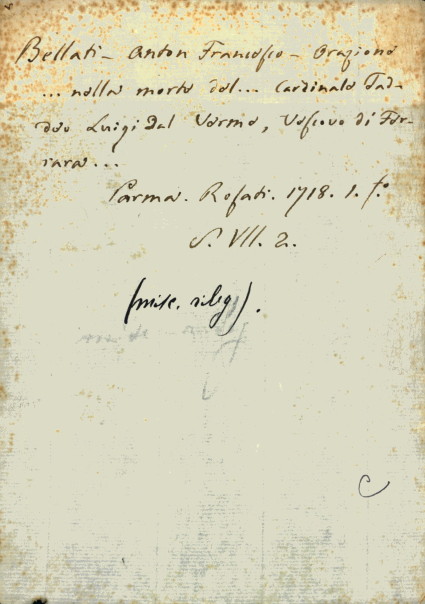 Bellati - Anton Francesco - Orazione
... nella morte del ... Cardinale Tad-
deo Luigi Dal Verme, Vescovo di Fer-
rara ...
Parma. Rosati. 1718. 1. f.º
S. VII. 2.
(misc. rileg).
C